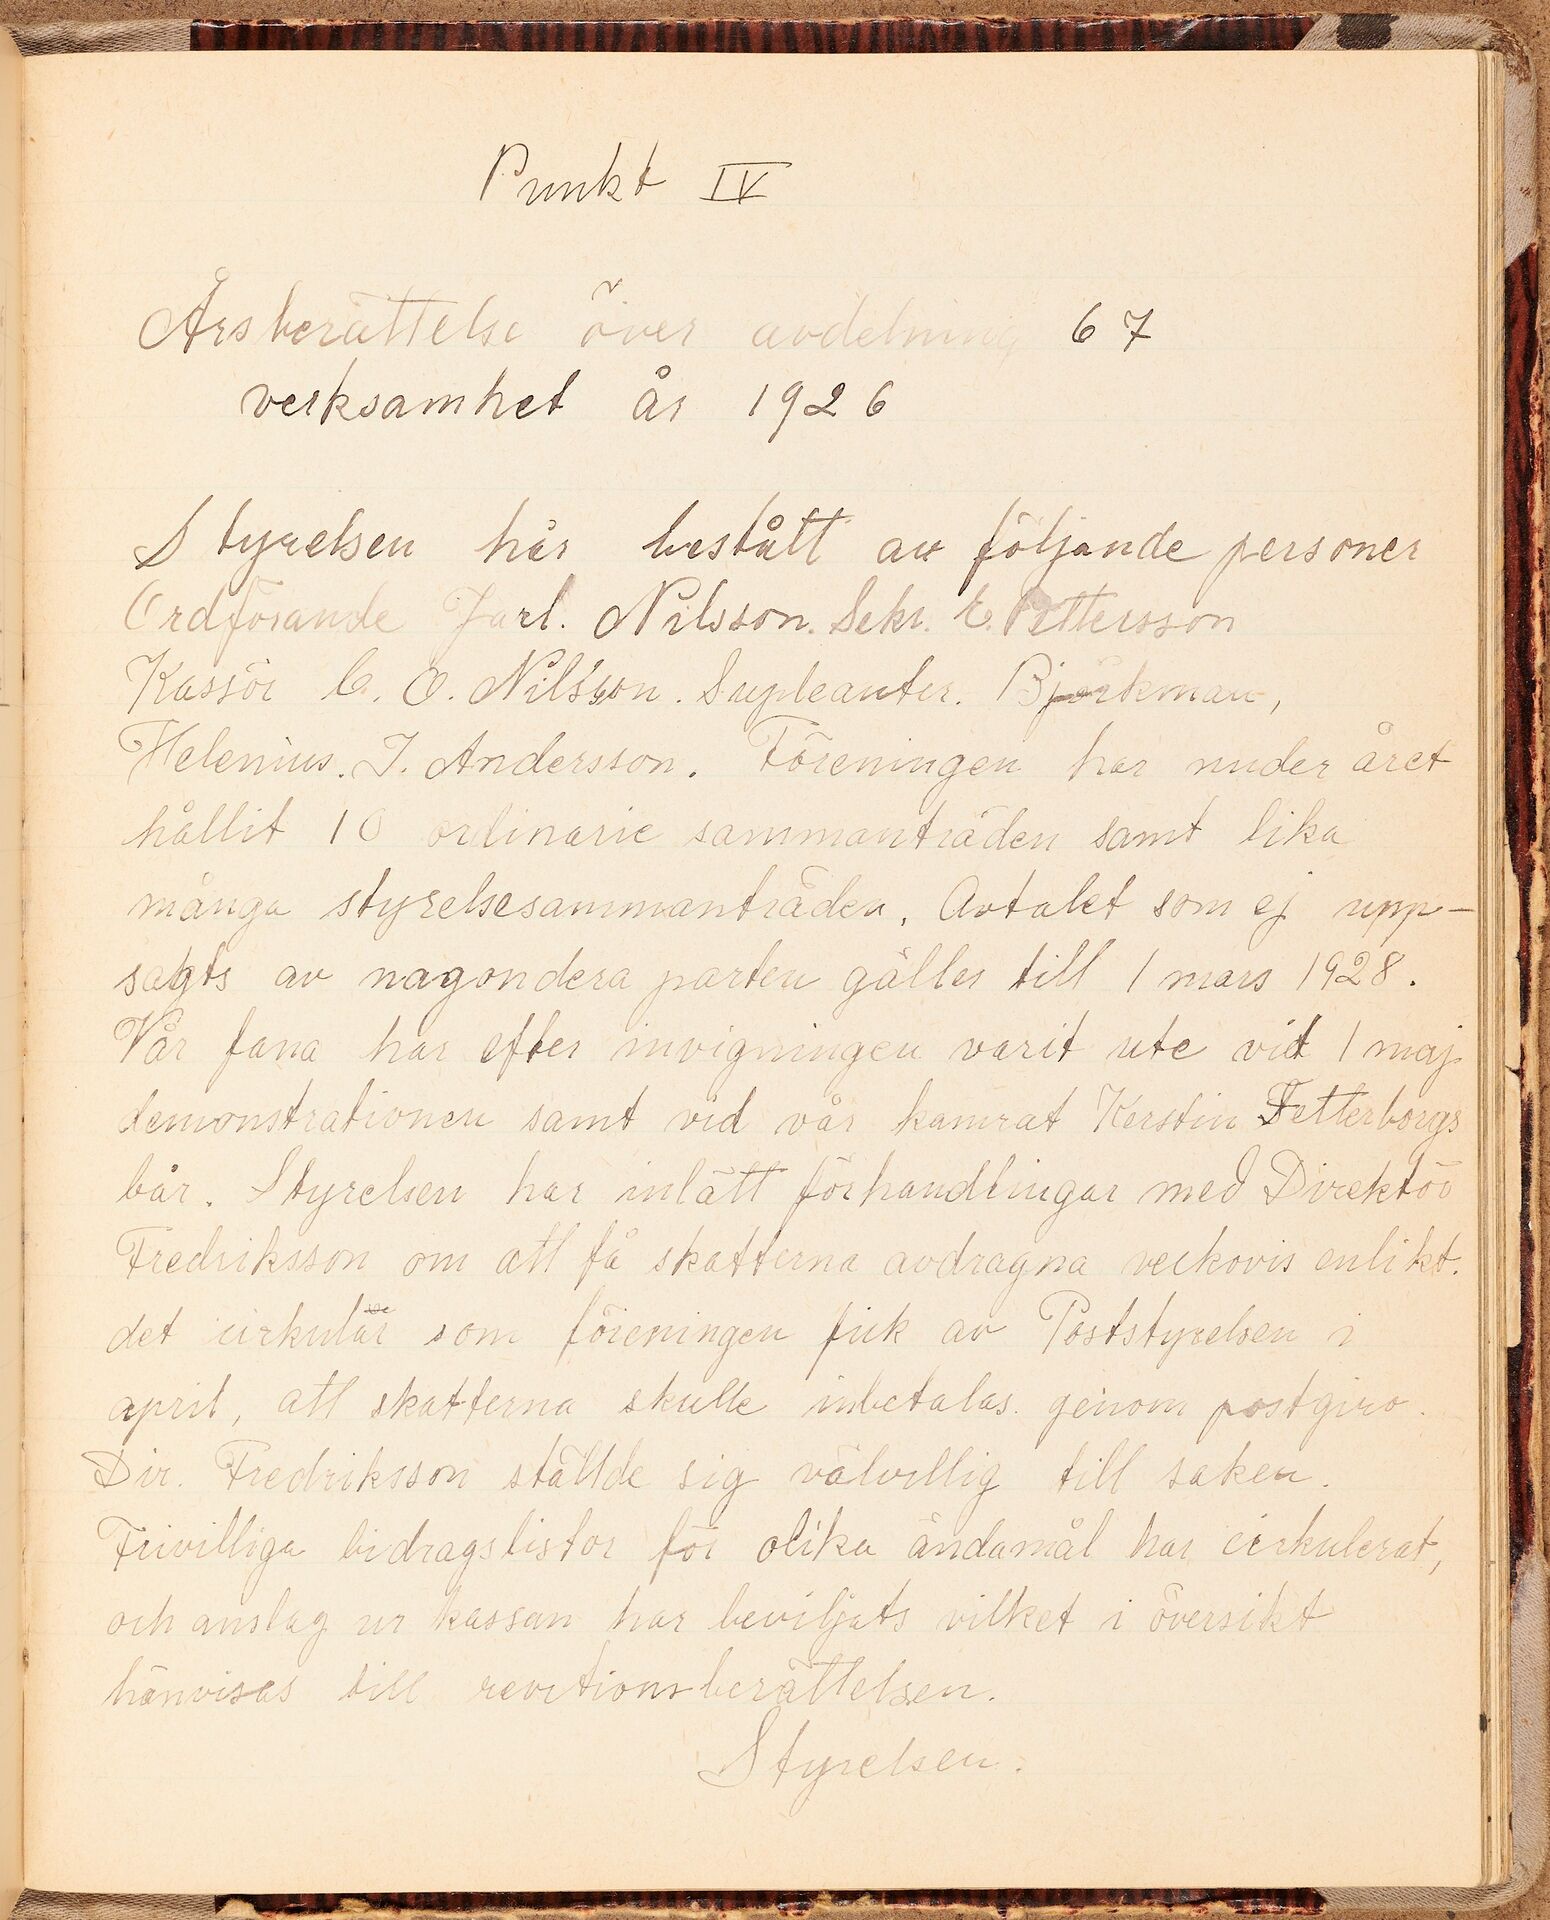 Punkt IV
Årsberättelse över avdelning 67
verksamhet år 1926
Styrelsen har bestått av följande personer
Ordförande Jarl. Nilsson. Sekr. E. Pettersson
Kassör C. O. Nilsson. Supleanter. Björkman,
Helenius. J. Andersson. Föreningen har under året
hållit 10 ordinarie sammanträden samt lika
många styrelsesammanträden. Avtalet som ej upp-
sagts av nagondera parten gäller till 1 mars 1928.
Vår fana har efter invigningen varit ute vid 1 maj
demonstrationen samt vid vår kamrat Kerstin Fetterborgs
bår. Styrelsen har inlätt förhandlingar med Direktör
Fredriksson om att få skatterna avdragna veckovis enlikt.
det cirkulär som föreningen fick av Poststyrelsen i
april, att skatterna skulle inbetalas. genom postgiro.
Dir. Fredriksson ställde sig välvillig till saken.
Frivilliga bidragslistor för olika ändamål har cirkulerat,
och anslag ur kassan har beviljats vilket i översikt
hänvisas till revitionsberättelsen.
Styrelsen.